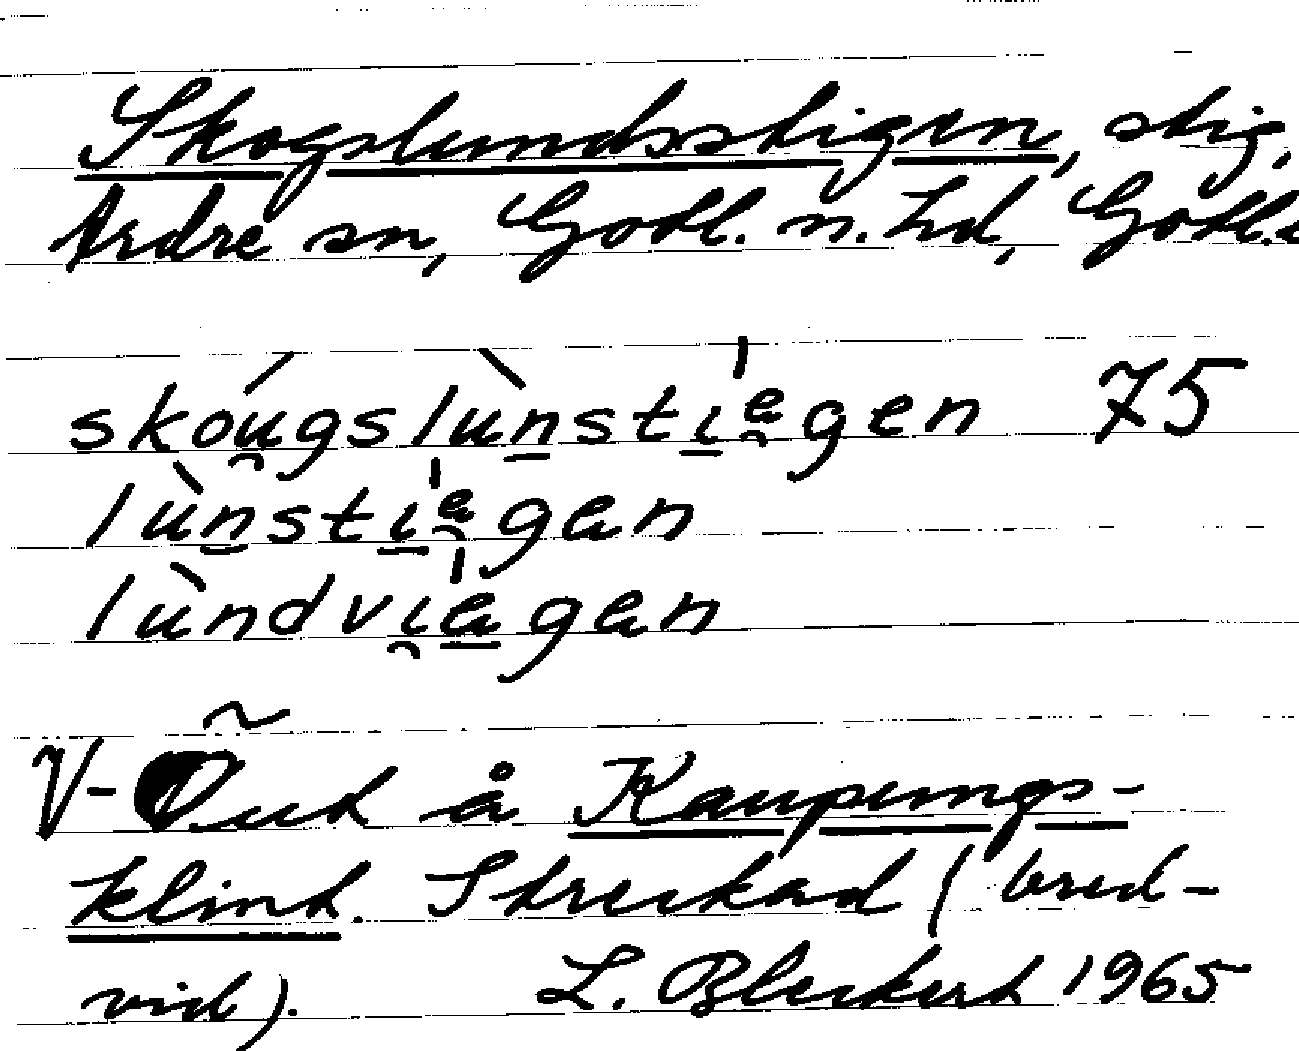 Skogslundsstigen, stig,
Ardre sn, Gotl. n. hd, Gotl.
skóu̯gslùn̲stɩ̲ᵉ̯gen 75
lùn̲stɩ̲ᵉ̯gen
lùndvɩ̯e̲gen
V-Öut å Kaupungs-
klint. Streckad (bred-
vid). L. Bleckert 1965